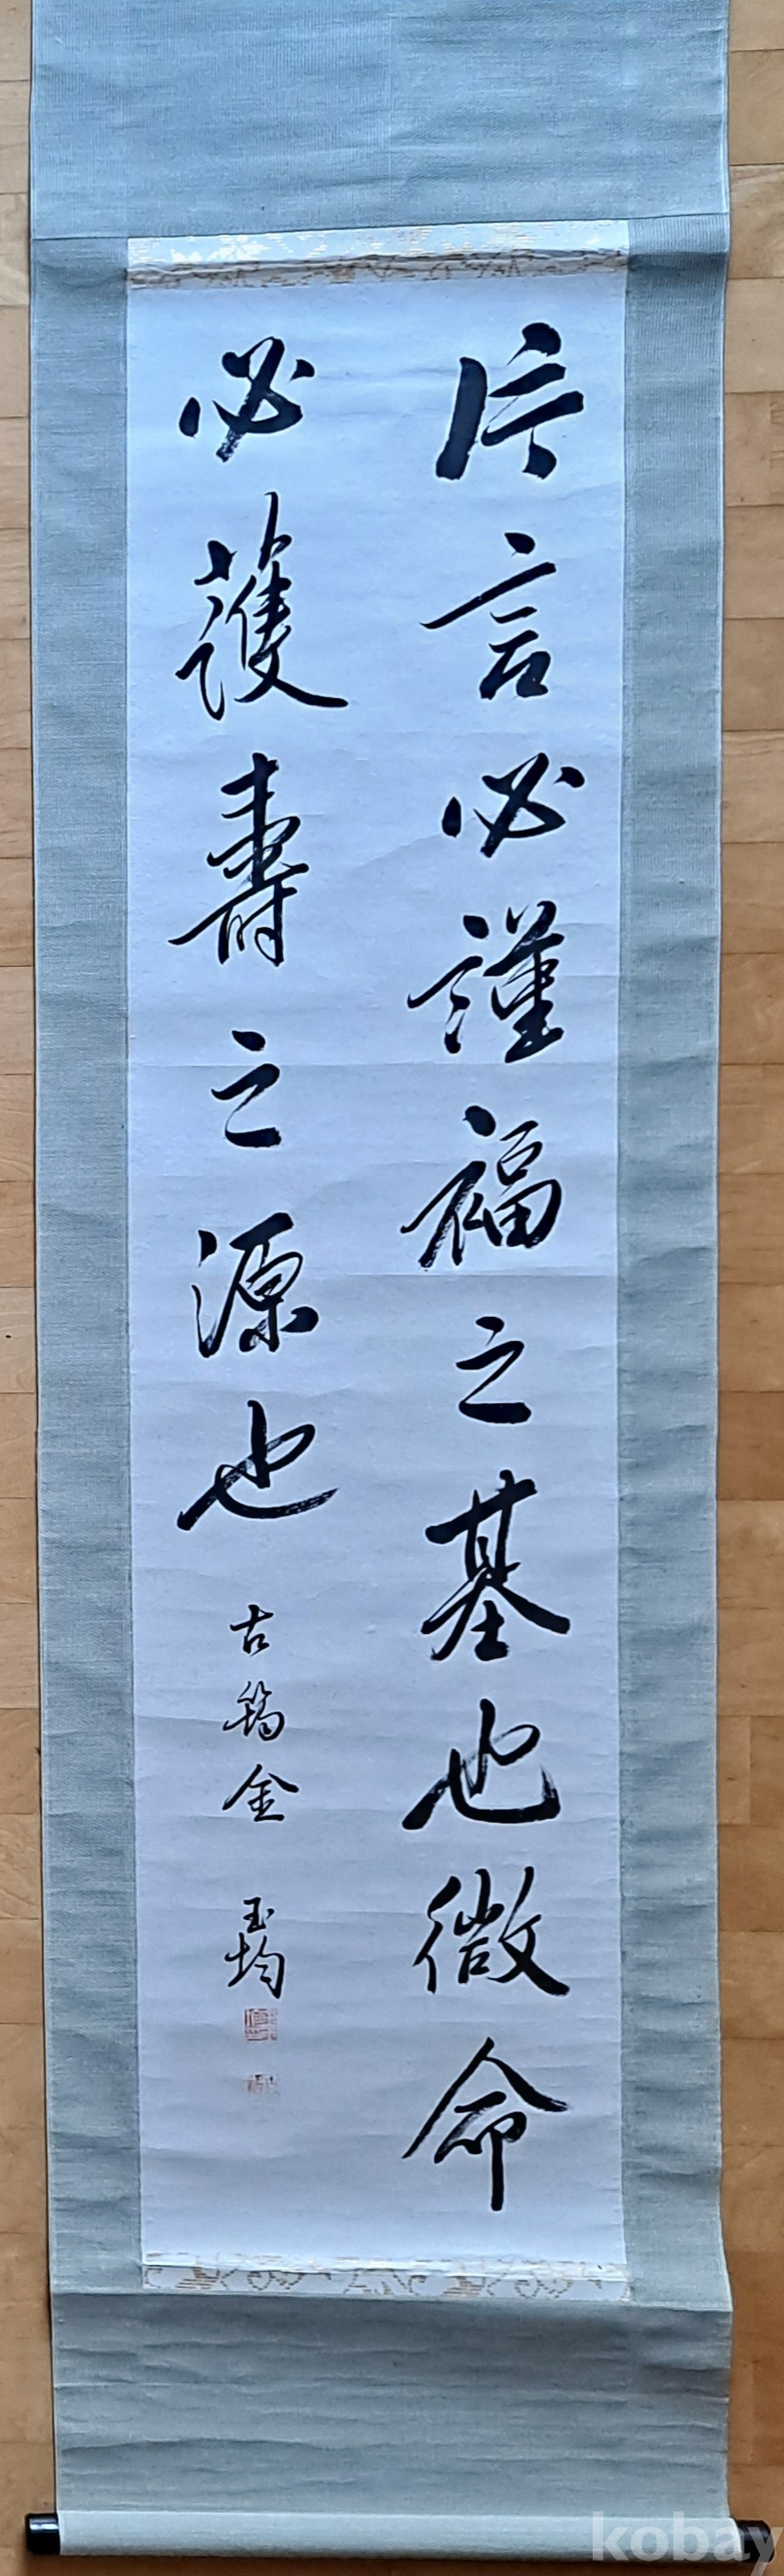 片言必謹福之基也微命
必護壽之源也
古筠金玉均
kobay